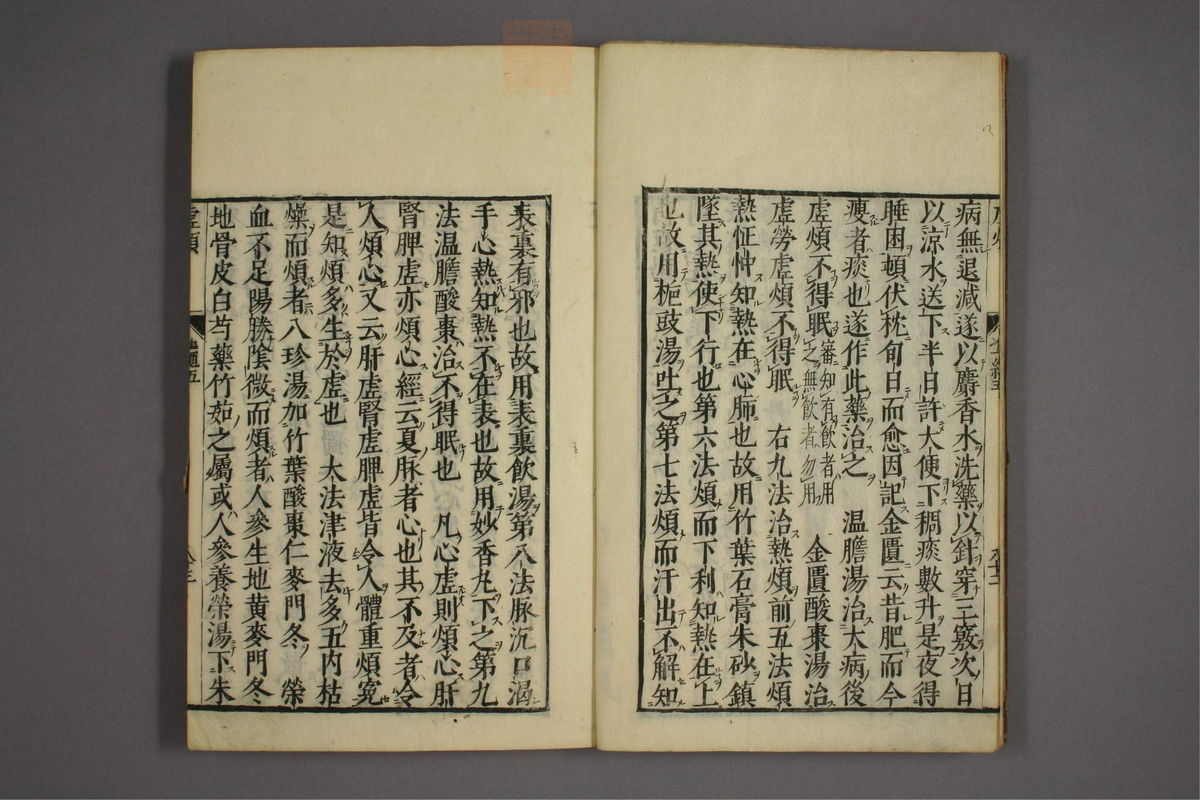 病無退減遂以麝香水洗藥以針穿三竅次日
以涼水送下半日許大便下稠痰數升是夜得
睡困頓伏枕旬日而愈因記金匱云昔肥而今
瘦者痰也遂作此藥治之　溫膽湯治大病後
虛煩不得眠審知有飲者用之無飲者勿用　金匱酸棗湯治
虛勞虛煩不得眠　右九法治熱煩前五法煩
熱怔忡知熱在心肺也故用竹葉石膏朱砂鎮
墜其熱使下行也第六法煩而下利知熱在上
也故用梔豉湯吐之第七法煩而汗出不解知
表裏有邪也故用表裏飲湯第八法脉沉口渴
手心熱知熱不在表也故用妙香丸下之第九
法溫膽酸棗治不得眠也　凡心虛則煩心肝
腎脾虛亦煩心經云夏脉者心也其不及者令
人煩心又云肝虛腎虛脾虛皆令人體重煩冤
是知煩多生於虛也　大法津液去多五內枯
燥而煩者八珍湯加竹葉酸棗仁麥門冬　榮
血不足陽勝陰微而煩者人參生地黃麥門冬
地骨皮白芍藥竹茹之屬或人參養榮湯下朱
虛煩